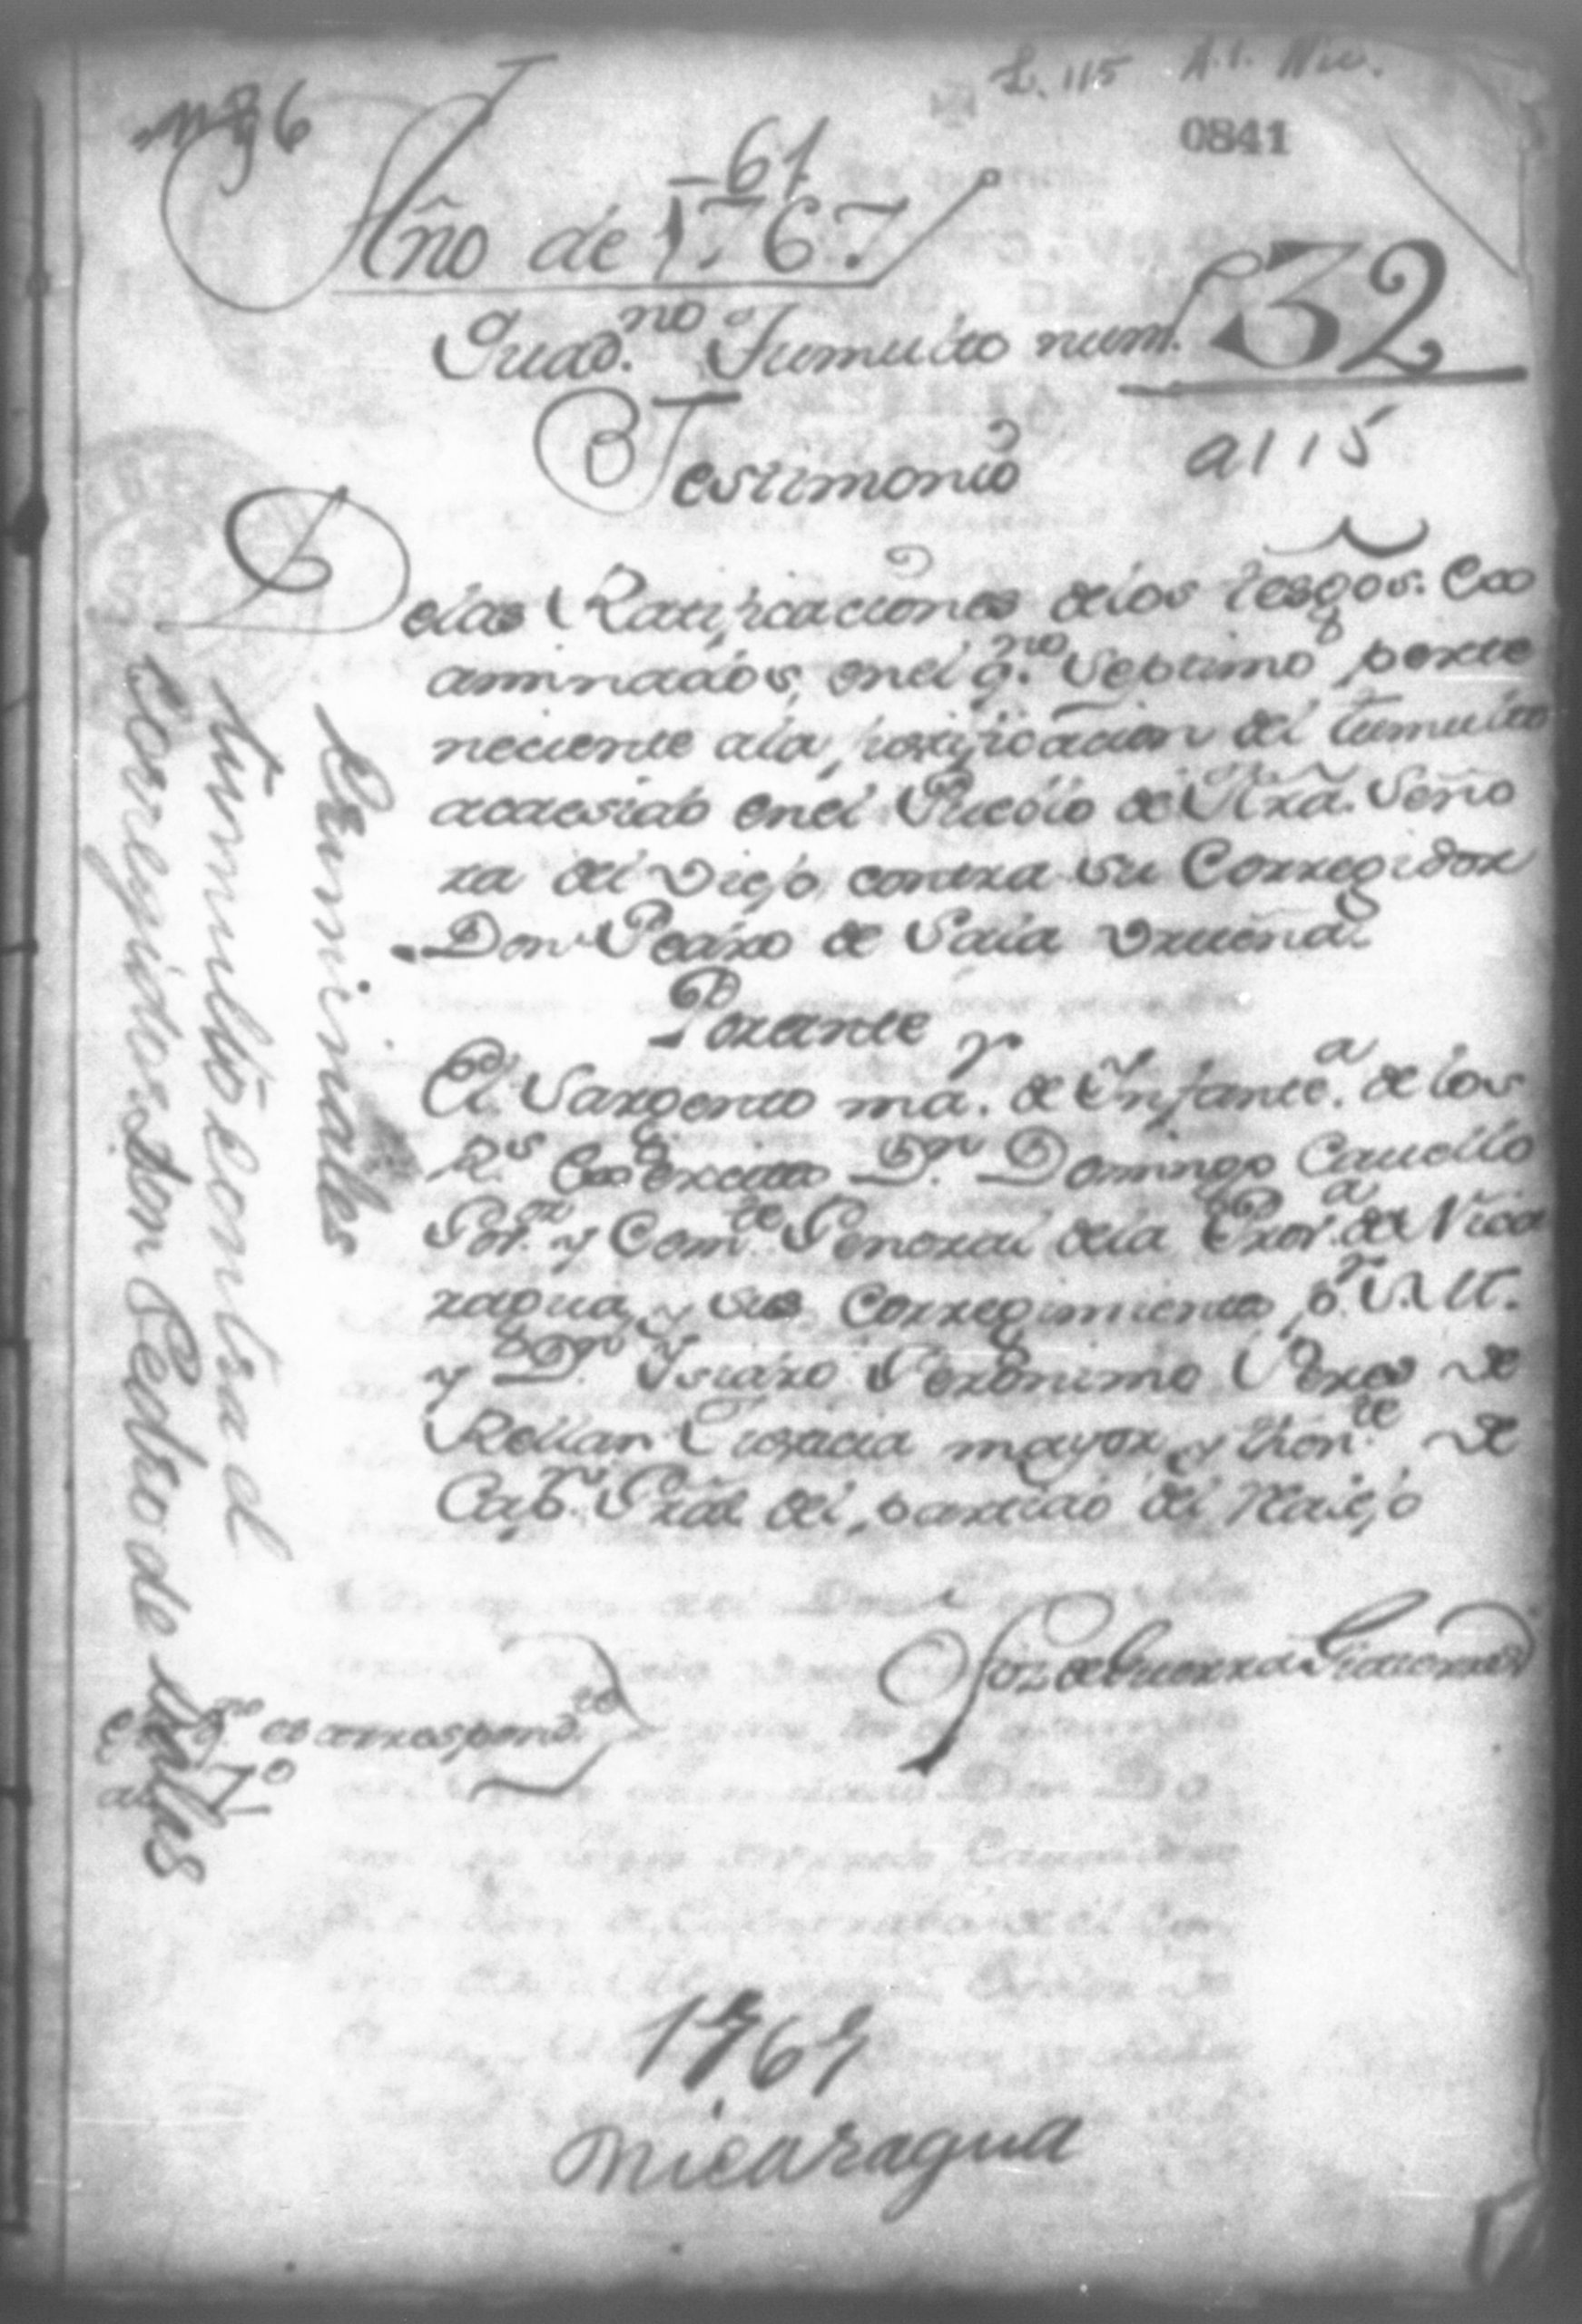 L. 115 A.1. Nic.
0841
61
Año de 1767
Quad.no Tumulto num. 32
a 115
Testimonio
Delas Ratificaciones delos tesgos. Exa
aminados, enel q.no Septimo perte
neciente ala justificacion del tumulto
acaesido enel Pueblo de Ntra. Seño
ra del Viejo contra su Corregidor
Don Pedro de Sala
Porante
El Sargento ma.r de Infante.a de los
R.s Exercitos D.n Domingo Cavello
Gov.or y Com.te General dela Prov.a de Nica
ragua, y sus Corregimientos p.r S. M.
y D.n Isidro Geronimo Peres de
Rellan Justicia mayor y thен.te de
Cap.n Gràl del partido del Realejo
Criminales
tumulto contra el
corregidor don Pedro de
q.no es correspond.te
al 7o
1767
Nicaragua